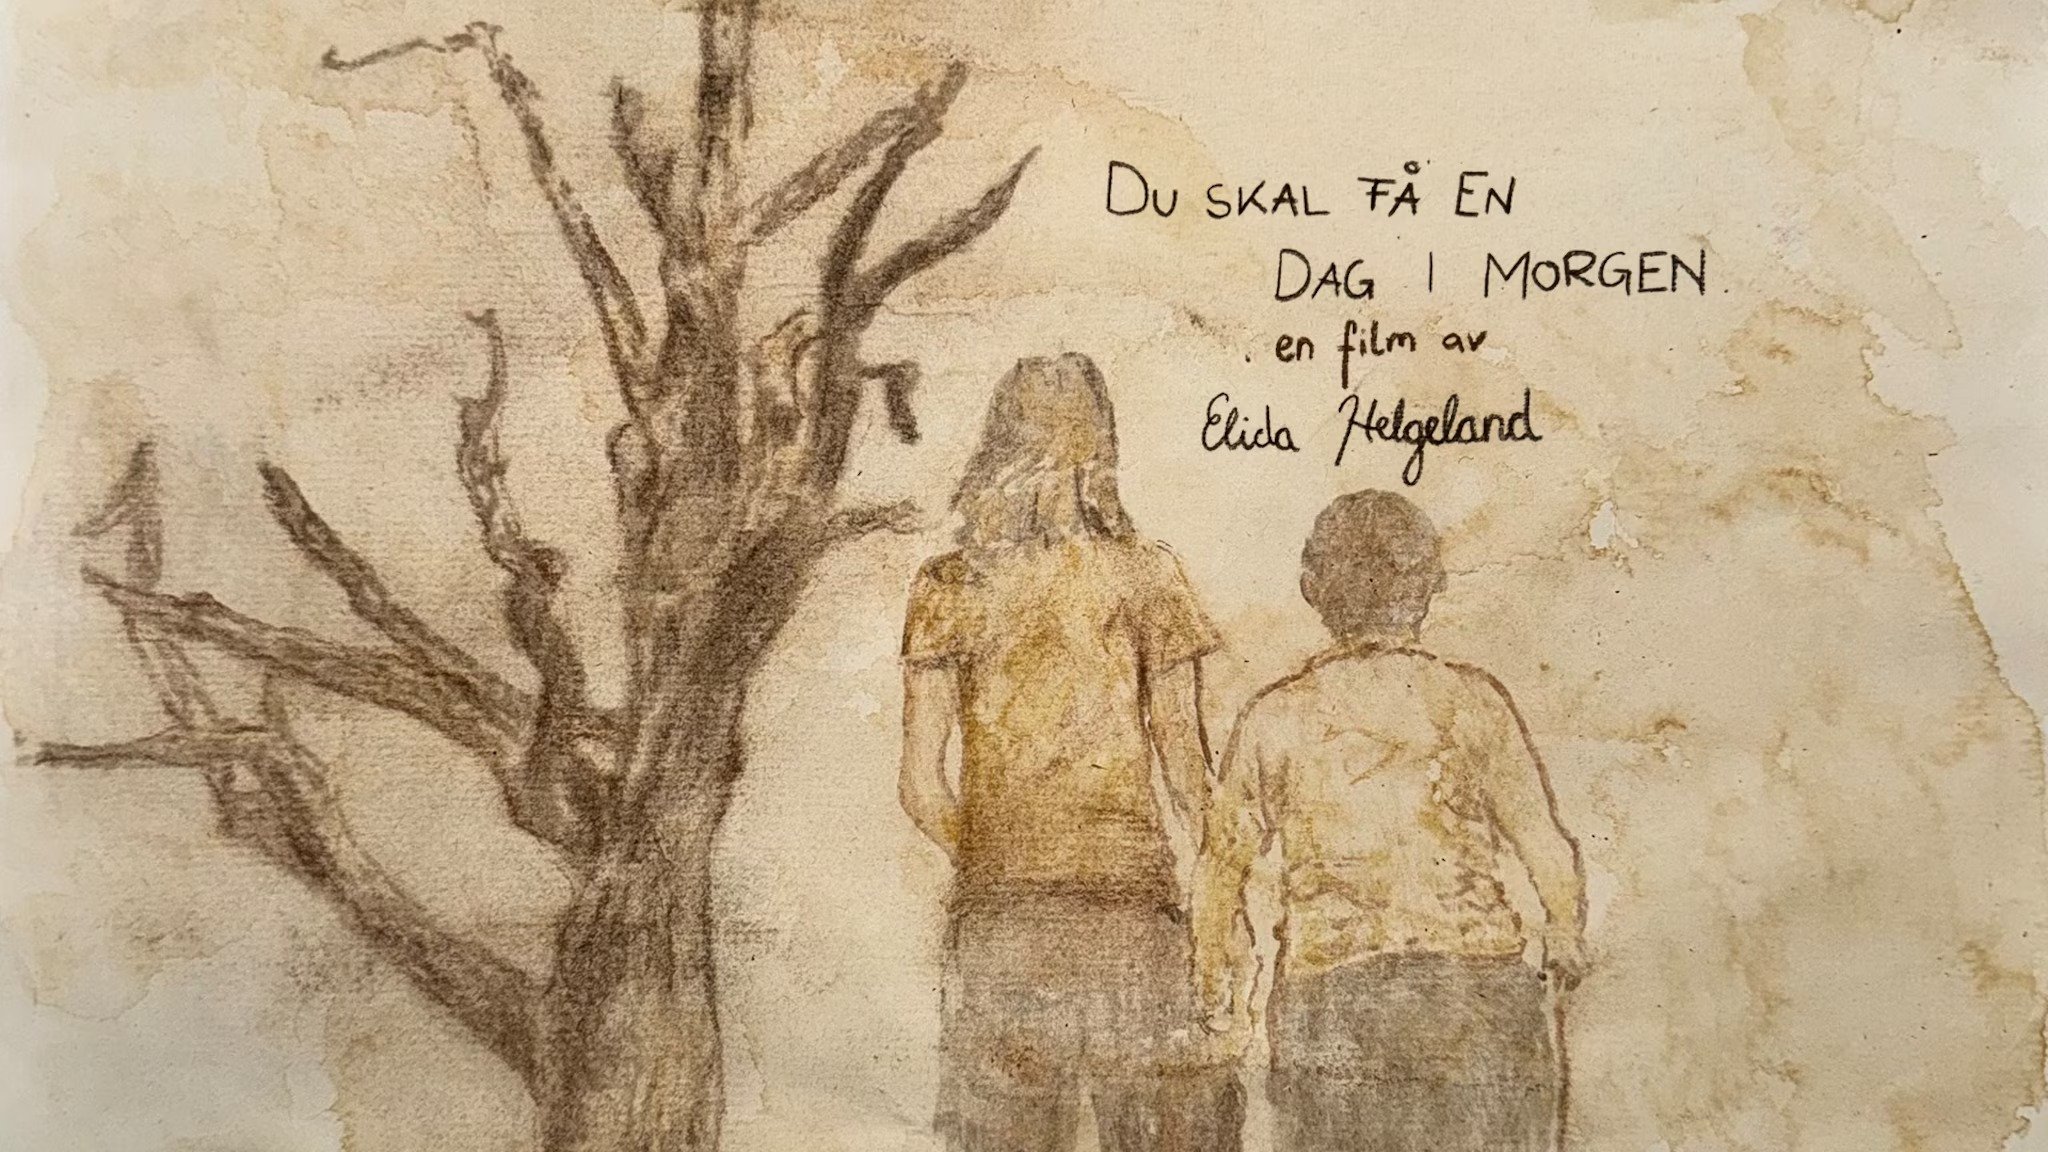 DU SKAL FÅ EN
DAG I MORGEN.
en film av
Elida Helgeland